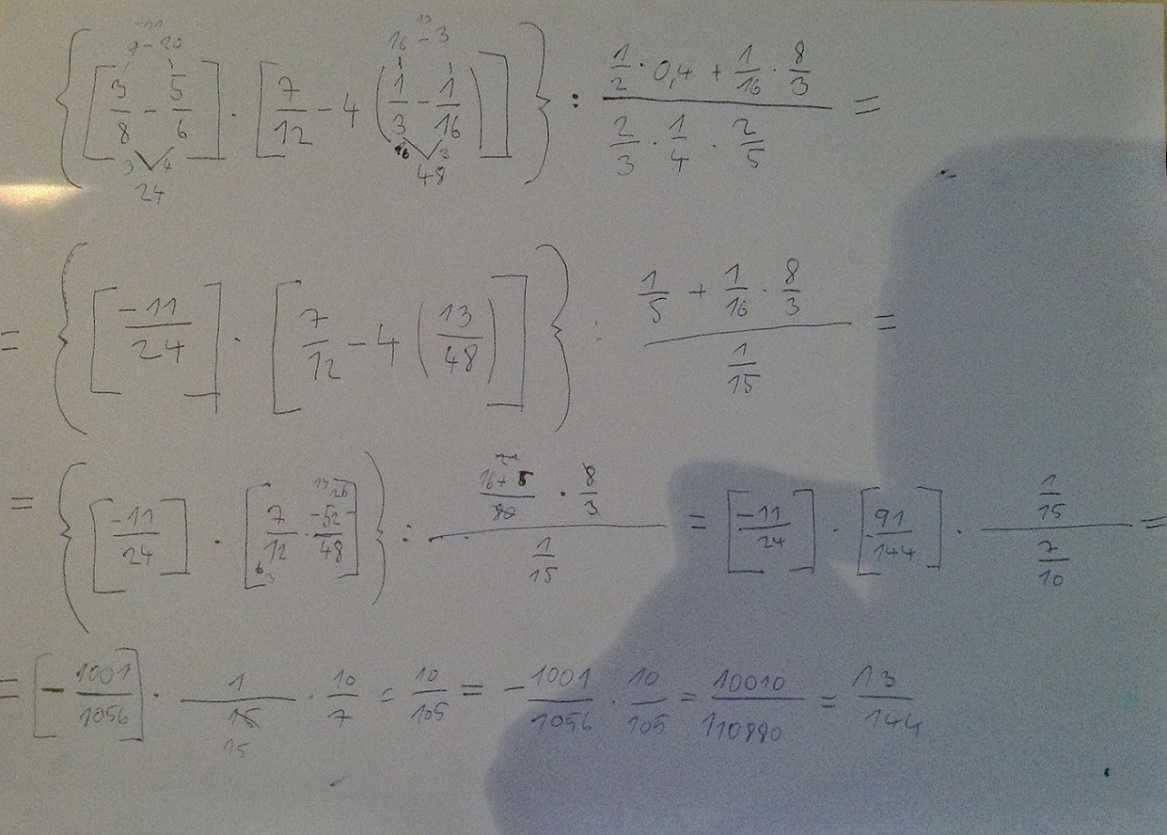 {[3/8 - 5/6] · [7/12 - 4 (1/3 - 1/16)]} : (1/2 · 0,4 + 1/16 · 8/3)/(2/3 · 1/4 · 2/5) =
9 - 20
-11
3 4
24
13
16 - 3
16 3
48
= {[-11/24] · [7/12 - 4 (13/48)]} : (1/5 + 1/16 · 8/3)/(1/15) =
= {[-11/24] · [7/12 · -52/48]} : ((16+5)/80 · 8/3)/(1/15) = [-11/24] · [91/144] · (1/15)/(7/10) =
13 26
6 3
= [- 1001/1056] · 1/15 · 10/7 = 10/105 = - 1001/1056 · 10/105 = 10010/110880 = 13/144
15